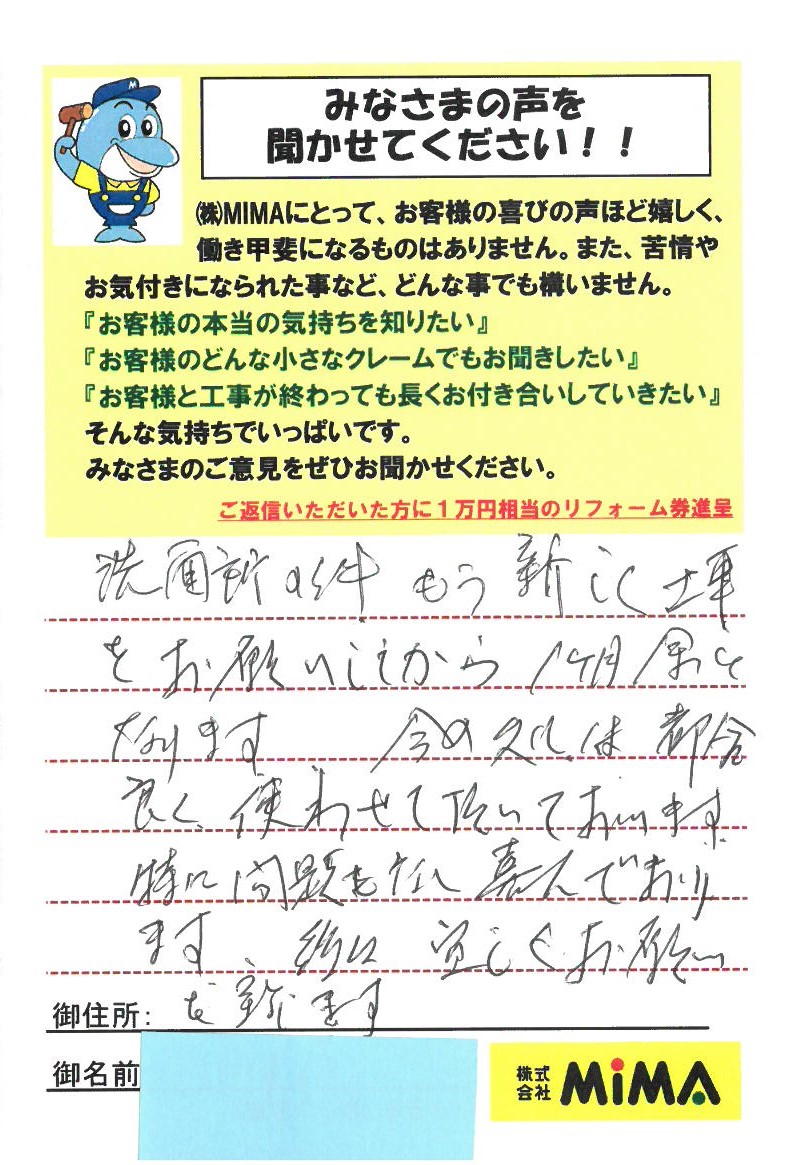 みなさまの声を
聞かせてください！！
㈱MIMAにとって、お客様の喜びの声ほど嬉しく、
働き甲斐になるものはありません。また、苦情や
お気付きになられた事など、どんな事でも構いません。
『お客様の本当の気持ちを知りたい』
『お客様のどんな小さなクレームでもお聞きしたい』
『お客様と工事が終わっても長くお付き合いしていきたい』
そんな気持ちでいっぱいです。
みなさまのご意見をぜひお聞かせください。
ご返信いただいた方に１万円相当のリフォーム券進呈
洗面所の件 もう新しく工事
をお願いしてから 1ヶ月
なります 今の処は 都合
良く、使わせて頂いております
特に問題もなく 喜んでおり
ます、 宜しくお願い
を致します
御住所:
御名前
株式
会社 MiMA
M